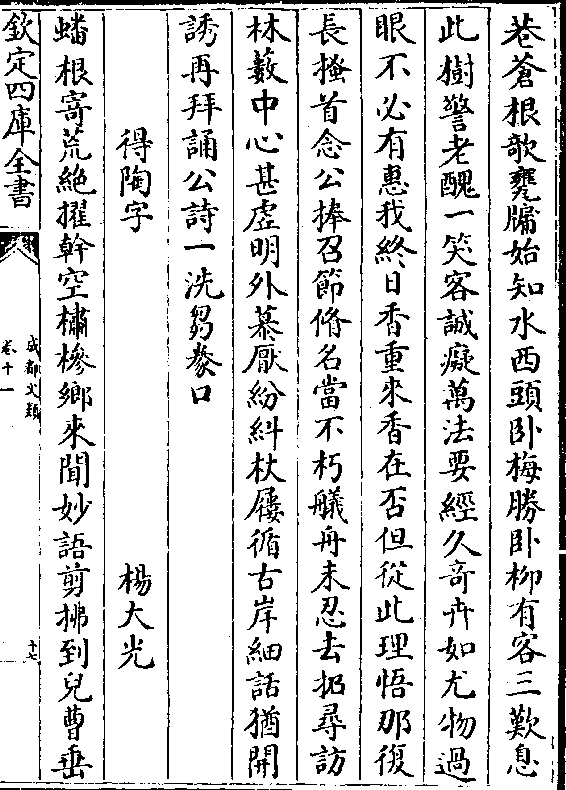 巷蒼根欹甕牖始知水西頭卧梅勝卧柳有客三歎息
此樹警老醜一笑客誠癡萬法要經久奇卉如尤物過
眼不必有惠我終日香重來香在否但從此理悟那復
長搔首念公捧召節脩名當不朽艤舟未忍去招尋訪
林藪中心甚虛明外慕厭紛糾杖屨循古岸細話猶開
誘再拜誦公詩一洗芻豢口
得陶字
楊大光
蟠根寄荒絶擢幹空橚槮鄉來聞妙語剪拂到兒曹垂
欽定四庫全書
成都文類
卷十一
十七